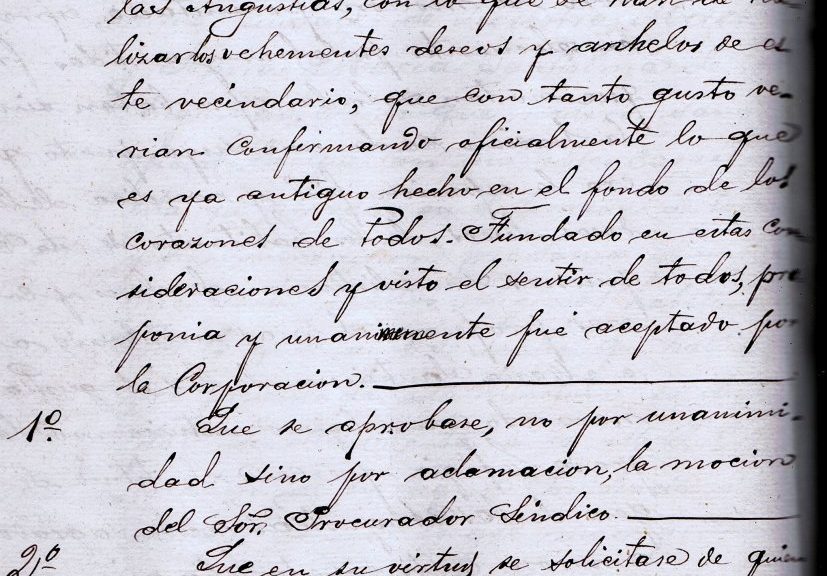 las Angustias, con lo que se han de
lizar los vehementes deseos y anhelos de es
te vecindario, que con tanto gusto ve-
rian confirmando oficialmente lo que
es ya antiguo hecho en el fondo de los
corazones de todos. Fundado en estas con
sideraciones y visto el sentir de todos, pro
ponia y unanimemente fué aceptado por
la Corporacion.
1º. Que se aprobase, no por unanimi-
dad sino por aclamacion, la mocion
del Sor. Procurador Sindico.
2º Que en su virtud se solicitase de quien